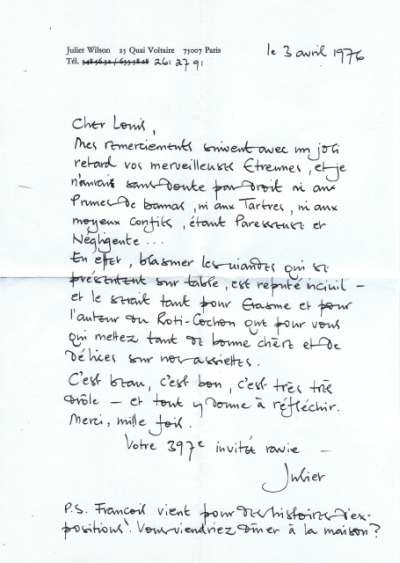 Juliet Wilson 25 Quai Voltaire 75007 Paris
le 3 avril 1976
Tél. 261 27 91
Cher Louis,
Mes remerciements suivent avec un joli
retard vos merveilleuses Etrennes, et je
n'aurais sans doute pas droit ni aux
Prunes de Damas, ni aux Tartres, ni aux
moyeux confits, étant Paresseuse et
Négligente...
En effet, blasmer les viandes qui se
présentent sur table, est reputé incivil –
et le serait tant pour Erasme et pour
l'auteur du Roti-Cochon que pour vous
qui mettez tant de bonne chère et de
délices sur nos assiettes.
C'est beau, c'est bon, c'est très très
drôle – et tout y donne à réfléchir.
Merci, mille fois.
Votre 397e invitée ravie –
Juliet
P.S. François vient pour des histoires d'ex-
positions! Vous viendriez dîner à la maison?